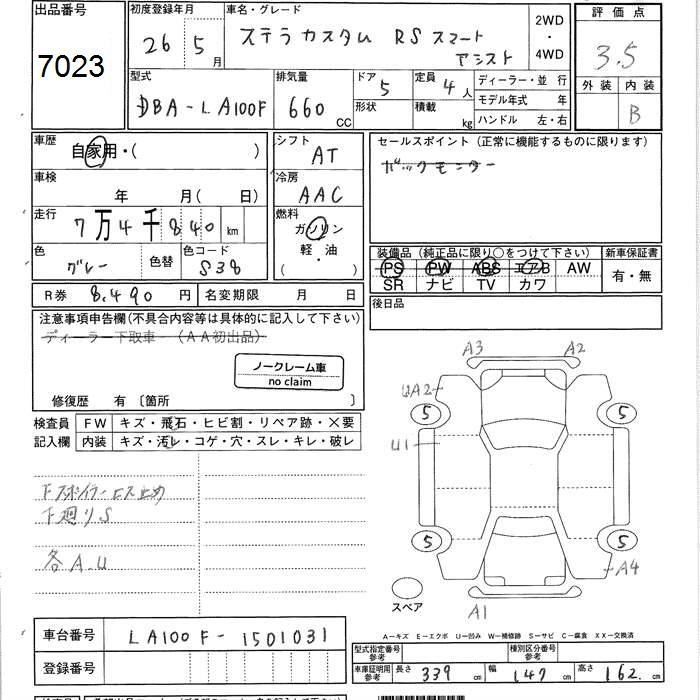 出品番号 7023
初度登録年月 26 5月
車名・グレード ステラカスタム RSスマートアシスト
2WD・4WD
評価点 3.5
外装 内装 B
型式 DBA-LA100F
排気量 660 CC
ドア 5 形状
定員 4人 積載 kg
ディーラー・並行
モデル年式 年
ハンドル 左・右
車歴 自家用・( )
シフト AT
セールスポイント(正常に機能するものに限ります)
バックモニター
車検 年 月(日)
冷房 AAC
走行 7万4千840km
燃料 ガソリン 軽・油 ( )
色 グレー 色替 色コード S38
装備品(純正品に限り○をつけて下さい) 新車保証書
PS PW ABS エアB AW 有・無
SR ナビ TV カワ
R券 8,490円 名変期限 月 日
後日品
注意事項申告欄(不具合内容等は具体的に記入して下さい)
ディーラー下取車 (AA初出品)
ノークレーム車
no claim
修復歴 有〔箇所 〕
検査員記入欄
FW キズ・飛石・ヒビ割・リペア跡・×要
内装 キズ・汚レ・コゲ・穴・スレ・キレ・破レ
下スポイラービス止め
下廻りS
各A.U
A3 A2
UA2
5 5
U1
5 5
A4
スペア A1
A-キズ E-エクボ U-凹み W-補修跡 S-サビ C-腐食 XX-交換済
車台番号 LA100F-1501031
登録番号
型式指定番号参考 種別区分番号参考
車庫証明用参考 長さ 339cm 幅 147cm 高さ 162cm